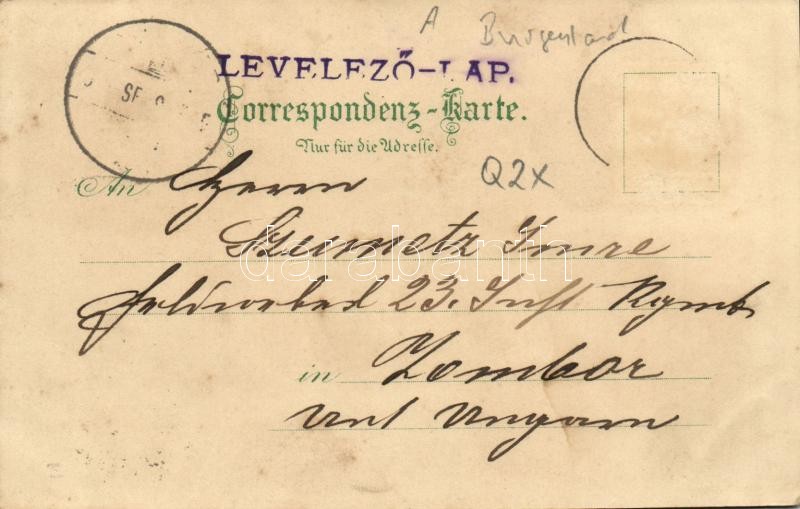 A Burgenland
LEVELEZŐ-LAP.
Correspondenz-Karte.
Nur für die Adresse.
Q2x
An Herrn
Imre
darabanth
Feldwebel 23. Inft Rgmt
in Zombor
Ungarn